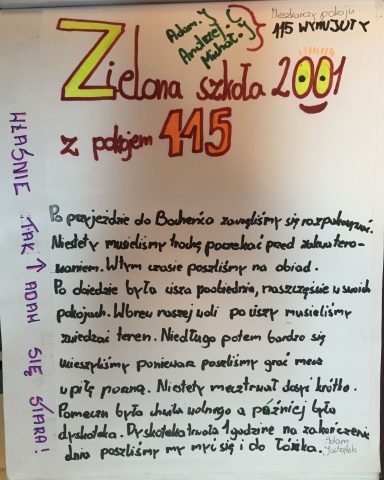 Adam. Y
Andrzej. Ć
Michał. J
Mieszkańcy pokoju
115 WYMJUTY
Zielona szkoła 2001
z pokojem 115
WŁAŚNIE TAK ↑ ADAM SIĘ STARA!
Po przyjeździe do Bocheńca zaczęliśmy się rozpakowywać.
Niestety musieliśmy trochę poczekać przed zakwatero-
waniem. W tym czasie poszliśmy na obiad.
Po obiedzie była cisza poobiednia, naszczęście w swoich
pokojach. Wbrew naszej woli po ciszy musieliśmy
zwiedzać teren. Niedługo potem bardzo się
ucieszyliśmy ponieważ poszliśmy grać mecz
w piłę nożną. Niestety mecz trwał dosyć krótko.
Po meczu była chwila wolnego a później była
dyskoteka. Dyskoteka trwała 1 godzinę na zakończenie
dnia poszliśmy my myć się i do łóżka.
Adam